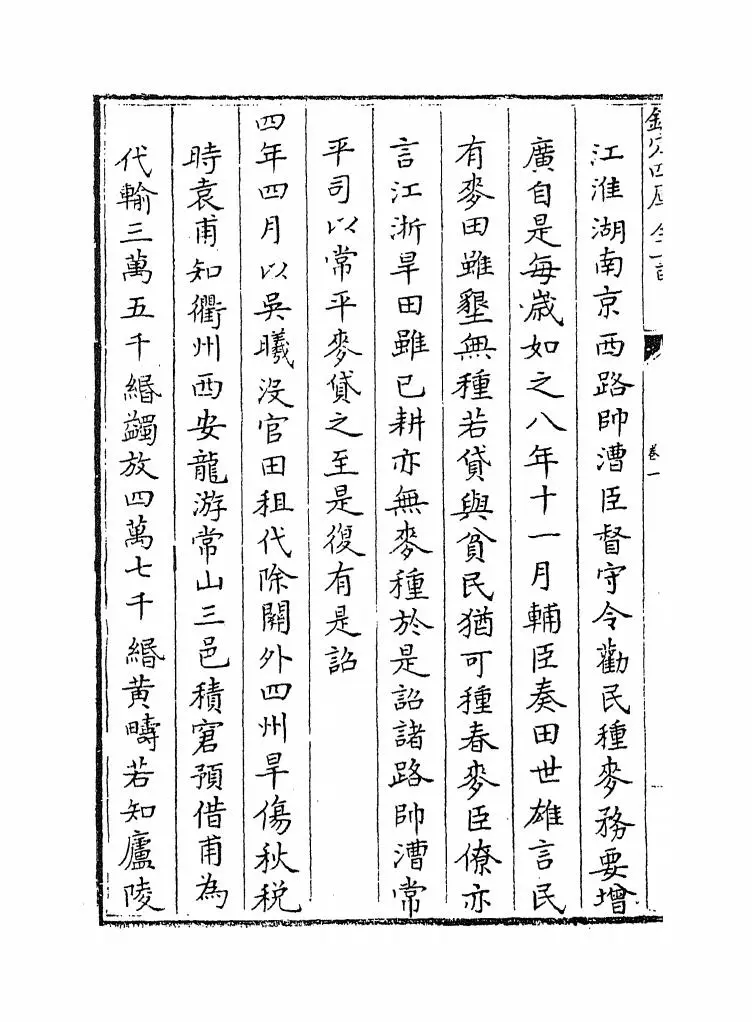 江淮湖南京西路帥漕臣督守令勸民種麥務要增
廣自是每歲如之八年十一月輔臣奏田世雄言民
有麥田雖墾無種若貸與貧民猶可種春麥臣僚亦
言江浙旱田雖已耕亦無麥種於是詔諸路帥漕常
平司以常平麥貸之至是復有是詔
四年四月以吳曦没官田租代除關外四州旱傷秋税
時袁甫知衢州西安龍游常山三邑積窘預借甫為
代輸三萬五千緡蠲放四萬七千緡黄疇若知廬陵
卷一